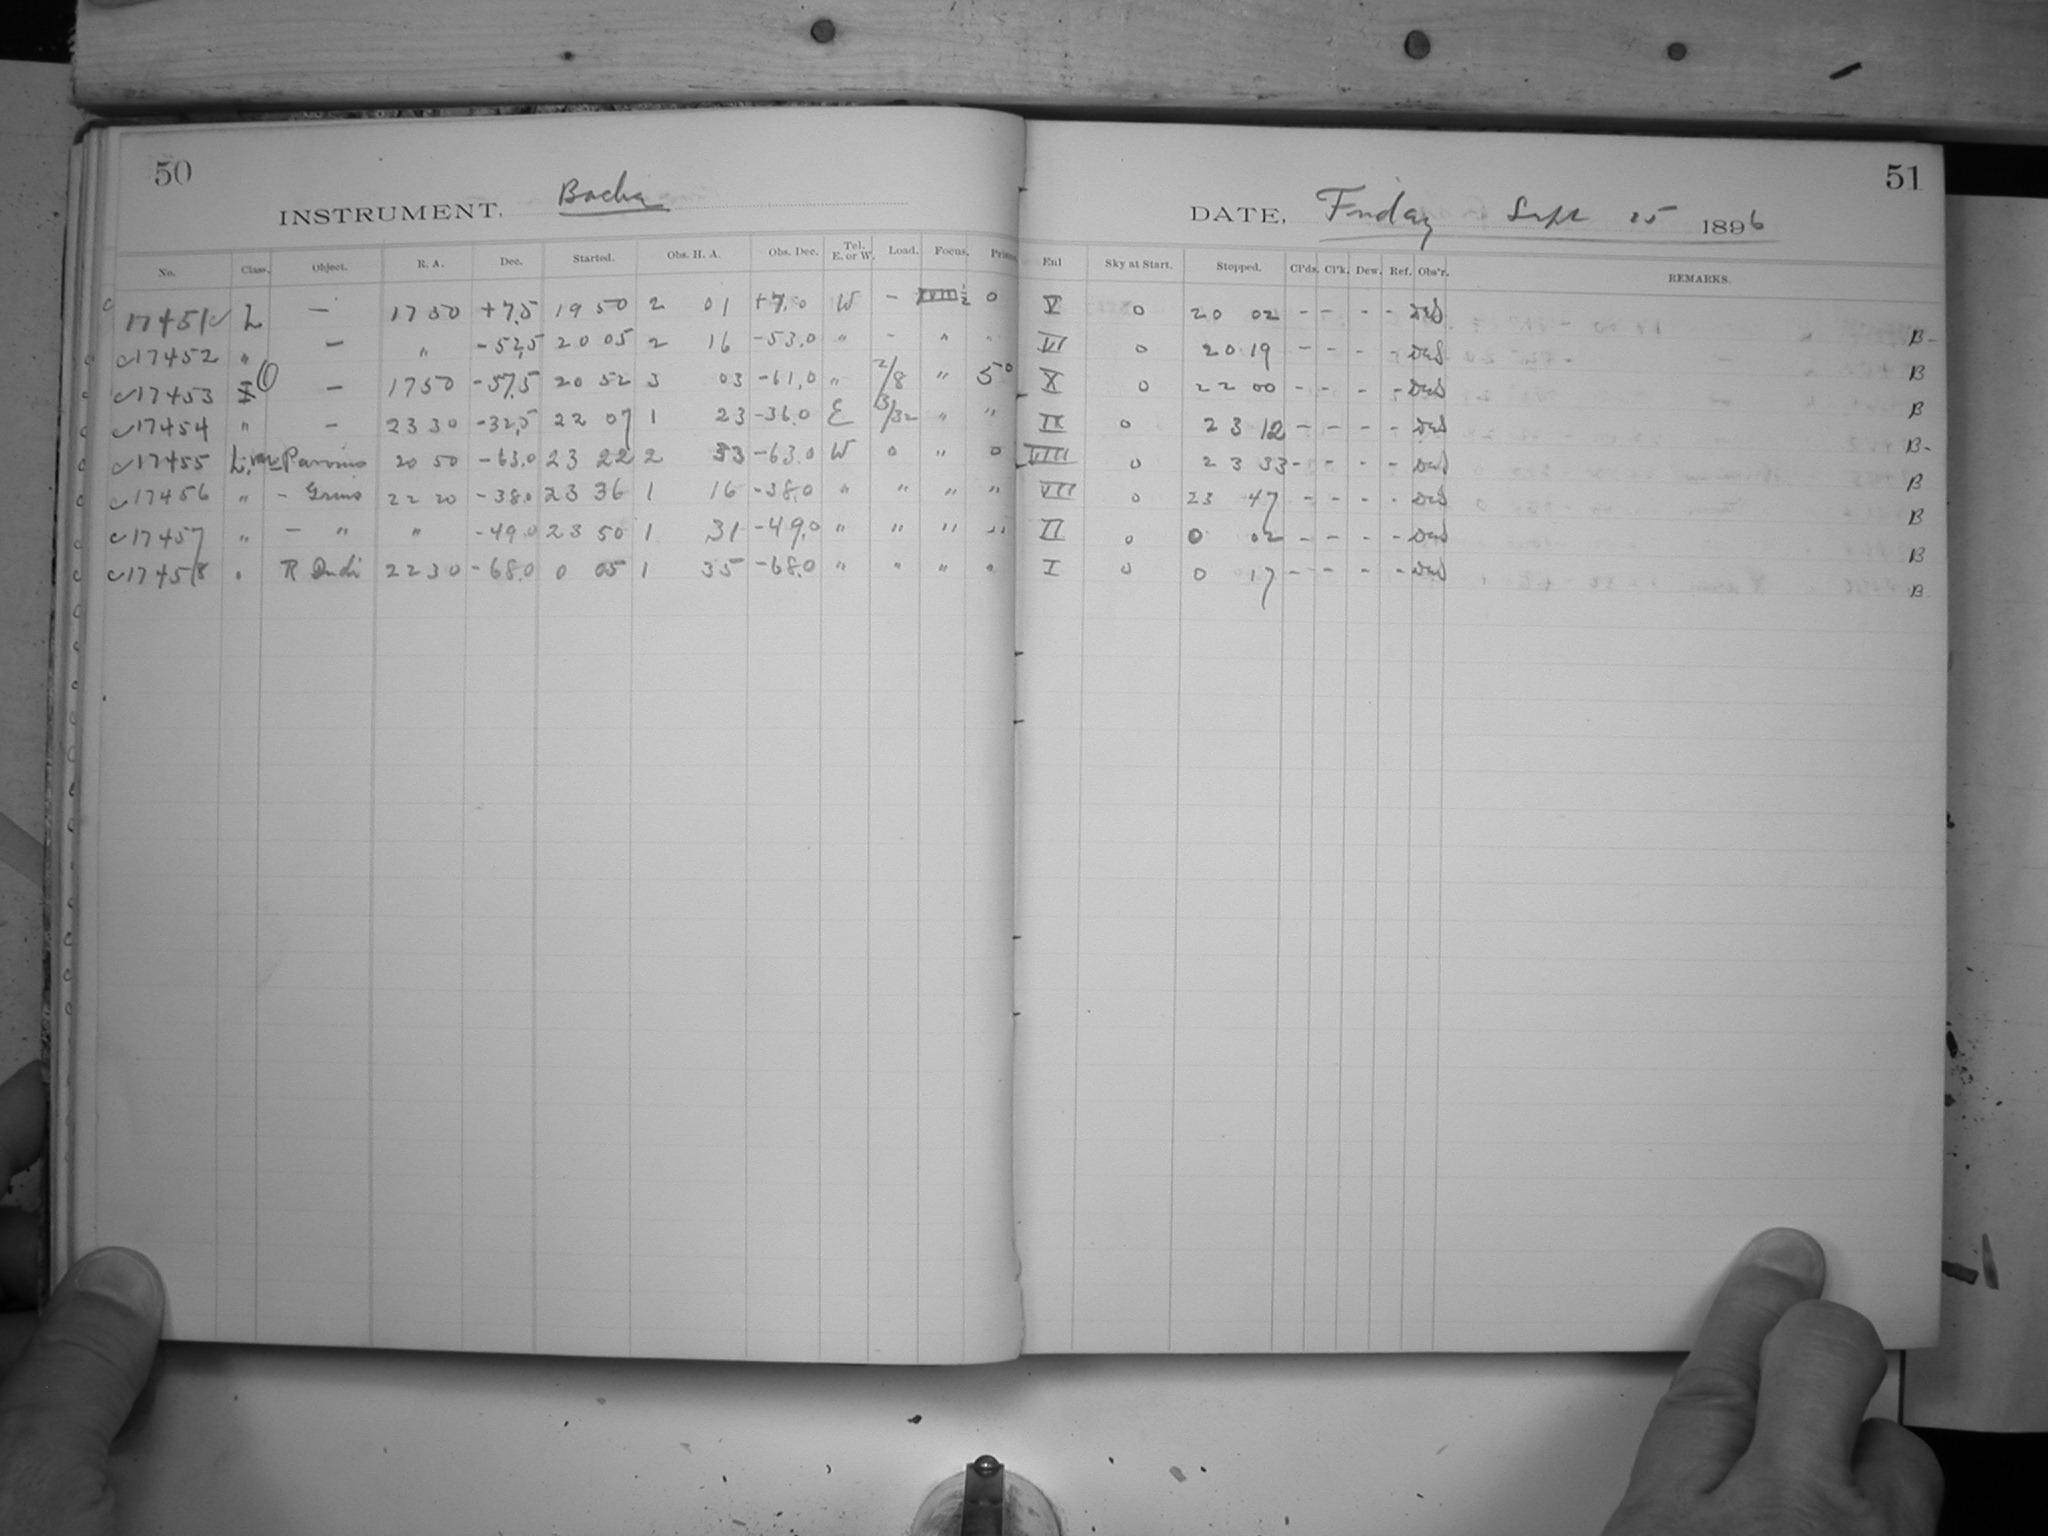 50
INSTRUMENT. Bache
No. Class. Object. R. A. Dec. Started. Obs. H. A. Obs. Dec. Tel. E. or W. Load. Focus. Prism
17451 L — 17 50 +7.5 19 50 2 01 +7.0 W - XVIII ½ 0
17452 " — " -52.5 20 05 2 16 -53.0 " - " "
17453 X — 17 50 -57.5 20 52 3 03 -61.0 " 2/8 " 5°
17454 " — 23 30 -32.5 22 07 1 23 -36.0 E 13/32 " "
17455 L, var Pavonis 20 50 -63.0 23 22 2 33 -63.0 W 0 " 0
17456 " - Gruis 22 20 -38.0 23 36 1 16 -38.0 " " " "
17457 " — " " -49.0 23 50 1 31 -49.0 " " " "
17458 " R Indi 22 30 -68.0 0 05 1 35 -68.0 " " " "
51
DATE, Friday Sept 25 1896
Enl Sky at Start. Stopped. Cl'ds. Cl'k. Dew. Ref. Obs'r. REMARKS.
V 0 20 02 - - - - B-
VI 0 20 19 - - - - B
X 0 22 00 - - - - B
IX 0 23 12 - - - - B-
VIII 0 23 33 - - - - B
VII 0 23 47 - - - - B
II 0 0 02 - - - - B
I 0 0 17 - - - - B